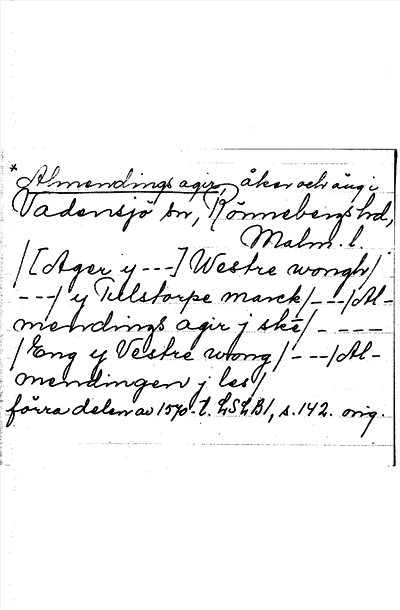 * Almendings agir, åker och äng i
Vadensjö sn, Rönnebergs hd,
Malm. l.
/[Ager y ---] Westre wongh/
---/ y Tulstorpe marck/---/Al-
mendings agir j ske/- ---
/Eng y Vestre wong/---/Al-
mendingen j les/
förra delen av 1570-t. LSLB1, s. 142. orig.